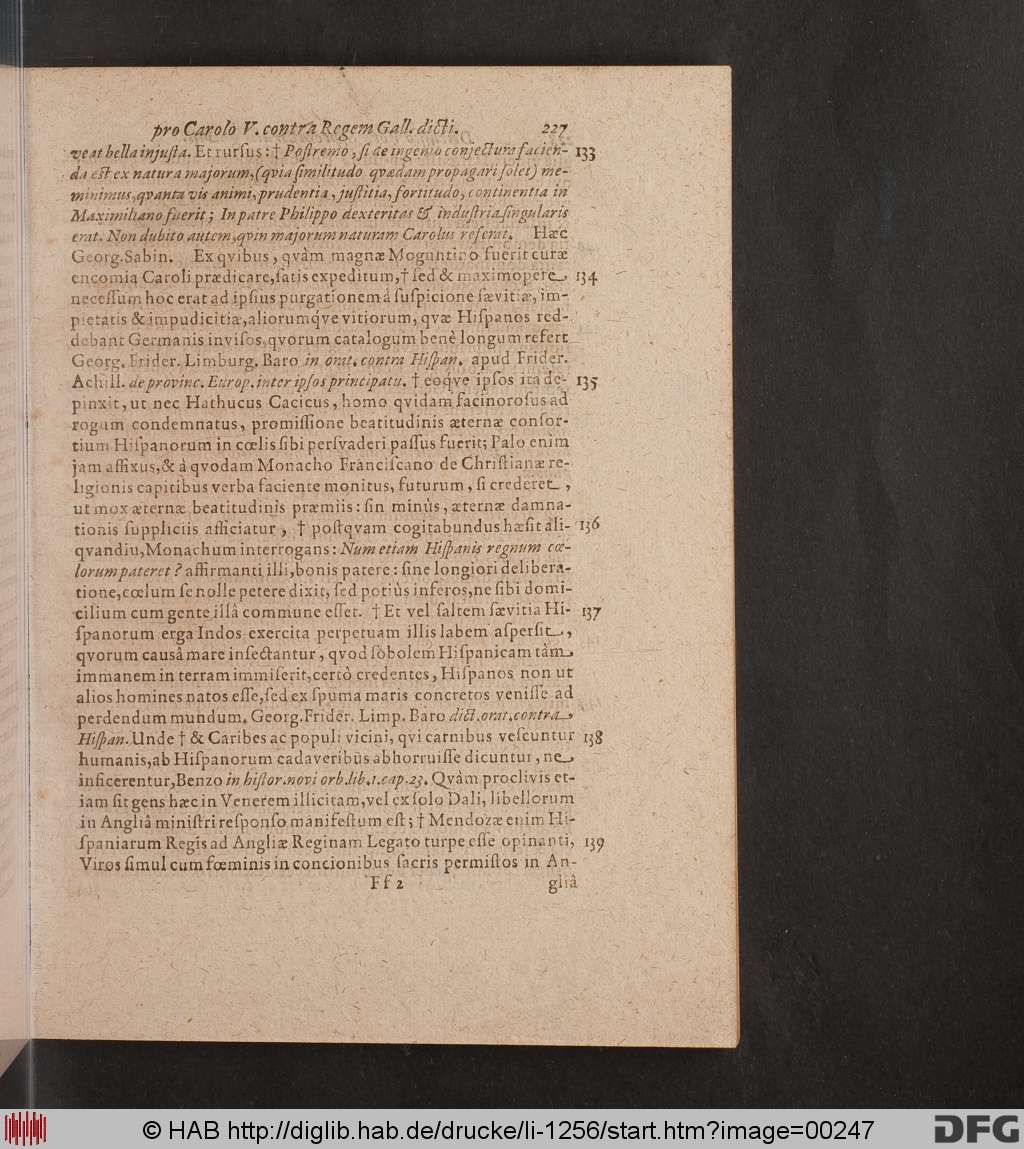 pro Carolo V. contra Regem Gall. dicti. 227
ve at bella injusta. Et rursus: † Postremo, si de ingenio conjectura facien- 133
da est ex natura majorum, (qvia similitudo qvædam propagari solet) me-
minimus, qvanta vis animi, prudentia, justitia, fortitudo, continentia in
Maximiliano fuerit; In patre Philippo dexteritas & industria singularis
erat. Non dubito autem, qvin majorum naturam Carolus referat. Hæc
Georg. Sabin. Ex qvibus, qvàm magnæ Moguntino fuerit curæ
encomia Caroli prædicare, satis expeditum, † sed & maximopere 134
necessum hoc erat ad ipsius purgationem â suspicione sævitiæ, im-
pietatis & impudicitiæ, aliorumq́ve vitiorum, qvæ Hispanos red-
debant Germanis invisos, qvorum catalogum benè longum refert
Georg. Frider. Limburg. Baro in orat. contra Hispan. apud Frider.
Achill. de provinc. Europ. inter ipsos principatu. † eoq́ve ipsos ita de- 135
pinxit, ut nec Hathucus Cacicus, homo qvidam facinorosus ad
rogum condemnatus, promissione beatitudinis æternæ consor-
tium Hispanorum in cœlis sibi persvaderi passus fuerit; Palo enim
jam affixus, & à qvodam Monacho Franciscano de Christianæ re-
ligionis capitibus verba faciente monitus, futurum, si crederet,
ut mox æternæ beatitudinis præmiis: sin minùs, æternæ damna-
tionis suppliciis afficiatur, † postqvam cogitabundus hæsit ali- 136
qvandiu, Monachum interrogans: Num etiam Hispanis regnum cœ-
lorum pateret? affirmanti illi, bonis patere: sine longiori delibera-
tione, cœlum se nolle petere dixit, sed potiùs inferos, ne sibi domi-
cilium cum gente illâ commune esset. † Et vel saltem sævitia Hi- 137
spanorum erga Indos exercita perpetuam illis labem aspersit,
qvorum causâ mare insectantur, qvod sobolem Hispanicam tàm
immanem in terram immiserit, certò credentes, Hispanos non ut
alios homines natos esse, sed ex spuma maris concretos venisse ad
perdendum mundum. Georg. Frider. Limp. Baro dict. orat. contra
Hispan. Unde † & Caribes ac populi vicini, qvi carnibus vescuntur 138
humanis, ab Hispanorum cadaveribus abhorruisse dicuntur, ne
inficerentur, Benzo in histor. novi orb. lib. 1. cap. 23. Qvàm proclivis et-
iam sit gens hæc in Venerem illicitam, vel ex solo Dali, libellorum
in Angliâ ministri responso manifestum est; † Mendozæ enim Hi-
spaniarum Regis ad Angliæ Reginam Legato turpe esse opinanti, 139
Viros simul cum fœminis in concionibus sacris permistos in An-
Ff 2 gliâ
© HAB http://diglib.hab.de/drucke/li-1256/start.htm?image=00247
DFG